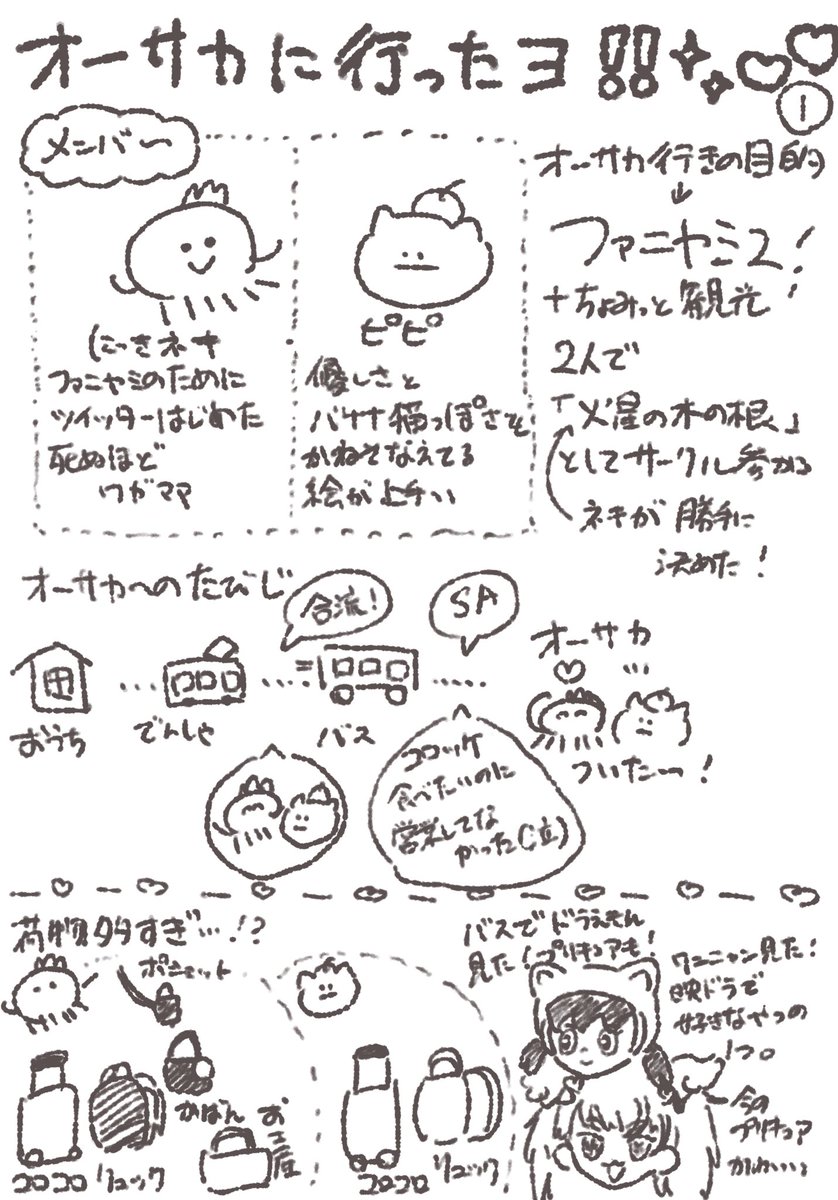 オーサカに行ったヨ!!
1
メンバー
にっきネキ
ファニヤミのために
ツイッターはじめた
死ぬほど
ワガママ
ピピ
優しさと
バサラ猫っぽさを
かねそなえてる
絵が上手い
オーサカ行きの目的
↓
ファニヤミ2!
+ちょみっと観光!
2人で
「火星の木の根」
としてサークル参加
ネキが勝手に
決めた!
オーサカへのたびじ
合流!
SA
おうち
でんしゃ
バス
コロッケ
食べたいのに
営業してな
かった(泣)
オーサカ
ついたー!
荷物多すぎ…!?
ポシェット
コロコロ
リュック
かばん
お土産
コロコロ
リュック
バスでドラえもん
見た!プリキュアも!
ワンニャン見た!
映ドラで
好きなやつの
1つ。
今の
プリキュア
かわいい